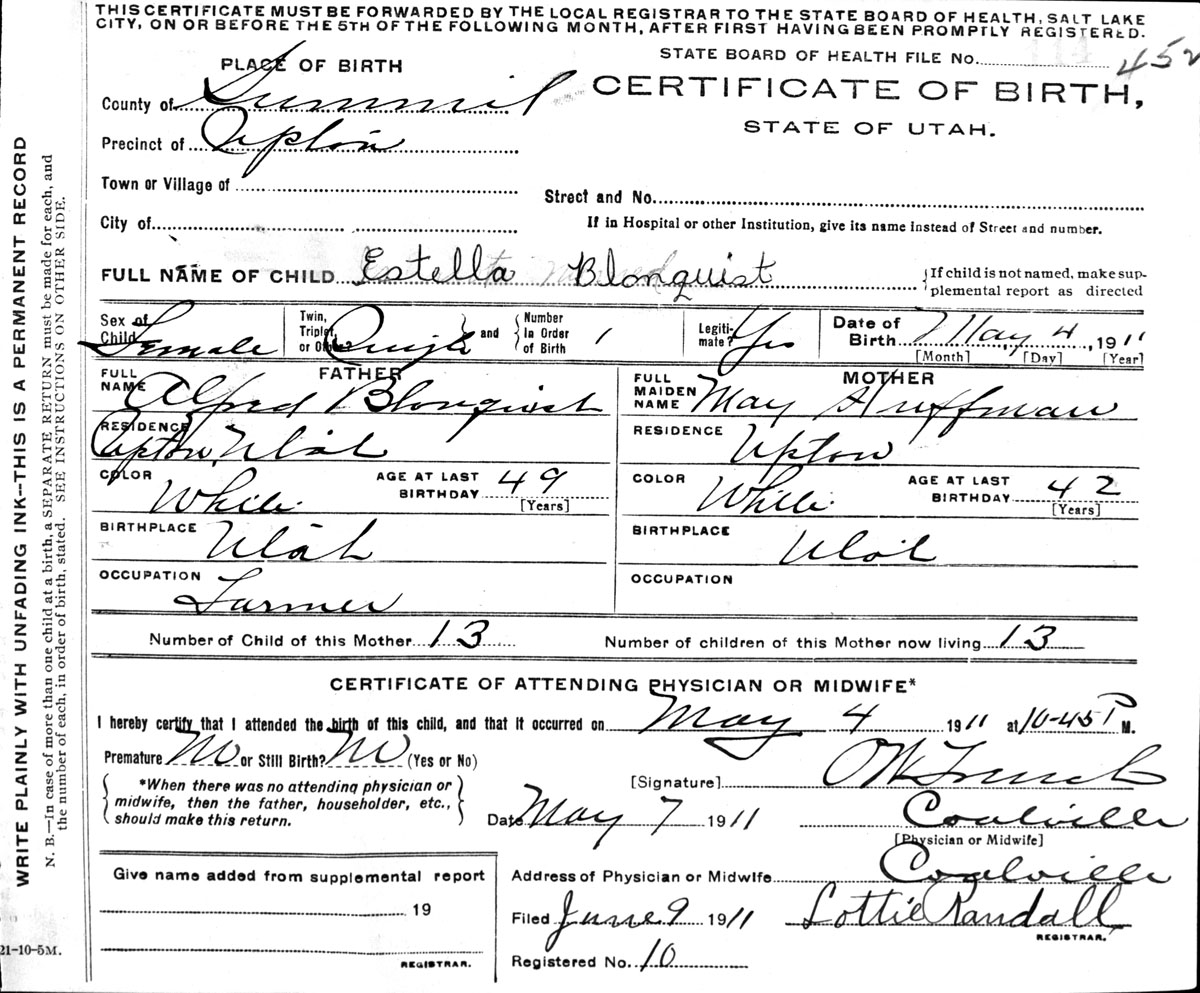 THIS CERTIFICATE MUST BE FORWARDED BY THE LOCAL REGISTRAR TO THE STATE BOARD OF HEALTH, SALT LAKE
CITY, ON OR BEFORE THE 5TH OF THE FOLLOWING MONTH, AFTER FIRST HAVING BEEN PROMPTLY REGISTERED.
STATE BOARD OF HEALTH FILE No. 452
PLACE OF BIRTH
CERTIFICATE OF BIRTH,
STATE OF UTAH.
County of Summit
Precinct of Upton
Town or Village of
Street and No.
City of
If in Hospital or other Institution, give its name instead of Street and number.
FULL NAME OF CHILD Estella Blonquist {If child is not named, make sup-
plemental report as directed
Sex of Child Female Twin, Triplet, or Other? Single and Number In Order of Birth 1 Legiti-mate? Yes Date of Birth May 4, 1911
[Month] [Day] [Year]
FATHER MOTHER
FULL NAME Alfred Blonquist FULL MAIDEN NAME May Huffman
RESIDENCE Upton, Utah RESIDENCE Upton
COLOR White AGE AT LAST BIRTHDAY 49 [Years] COLOR White AGE AT LAST BIRTHDAY 42 [Years]
BIRTHPLACE Utah BIRTHPLACE Utah
OCCUPATION Farmer OCCUPATION
Number of Child of this Mother 13 Number of children of this Mother now living 13
CERTIFICATE OF ATTENDING PHYSICIAN OR MIDWIFE*
I hereby certify that I attended the birth of this child, and that it occurred on May 4 1911 at 10-45 P M.
Premature No or Still Birth? No (Yes or No)
*When there was no attending physician or
midwife, then the father, householder, etc.,
should make this return.
[Signature]
Date May 7 1911 Coalville
[Physician or Midwife]
Address of Physician or Midwife Coalville
Filed June 9 1911 Lottie Randall
REGISTRAR.
Registered No. 10
Give name added from supplemental report
19
REGISTRAR.
21-10-5M.
WRITE PLAINLY WITH UNFADING INK--THIS IS A PERMANENT RECORD
N. B.—In case of more than one child at a birth, a SEPARATE RETURN must be made for each, and
the number of each, in order of birth, stated. SEE INSTRUCTIONS ON OTHER SIDE.